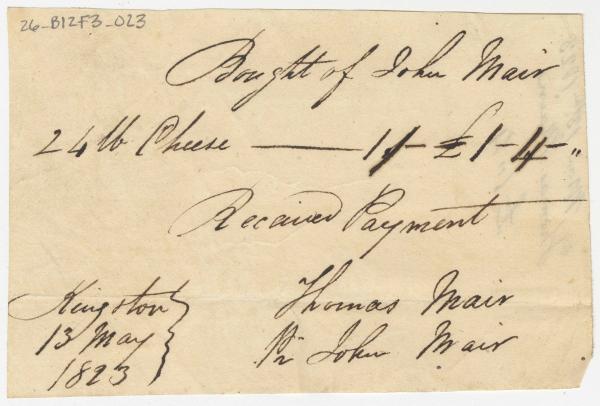 26-B12F3-023
Bought of John Mair
24 lb Cheese — 1/- £1-4-"
Received Payment
Kingston
13 May
1823
Thomas Mair
Pr John Mair